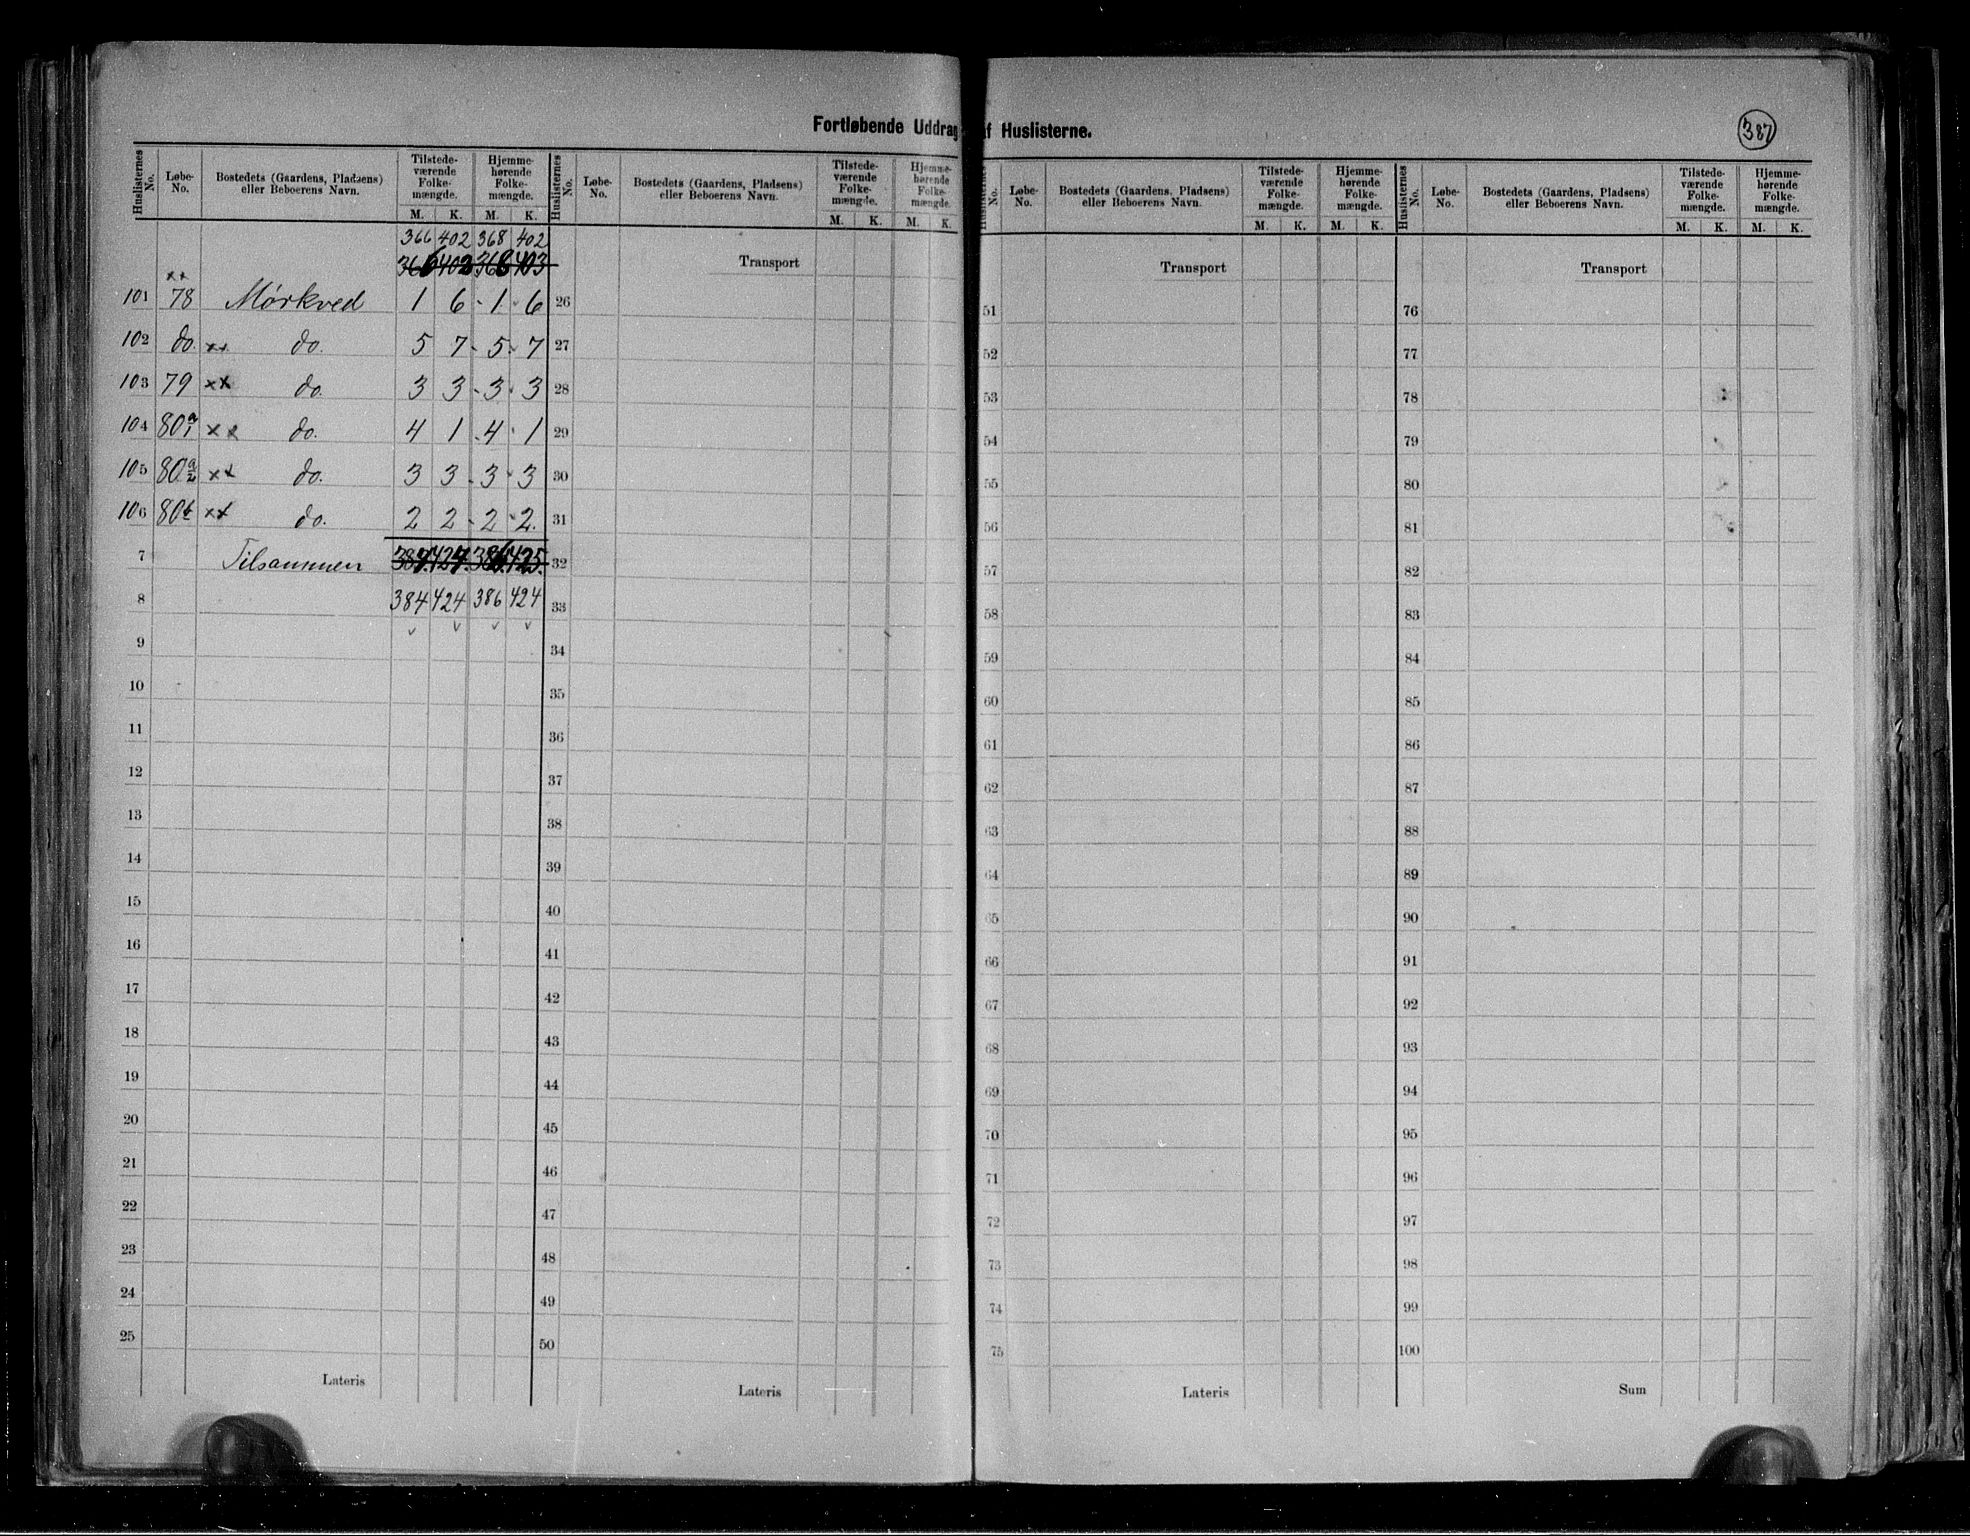 Fortløbende Uddrag af Huslisterne.
387
Huslisternes No. Løbe-No. Bostedets (Gaardens, Pladsens) eller Beboerens Navn. Tilstedeværende Folkemængde. M. K. Hjemmehørende Folkemængde. M. K.
366 402 368 402
101 78 Mørkved 1 6 1 6
102 do. do. 5 7 5 7
103 79 do. 3 3 3 3
104 80 a/1 do. 4 1 4 1
105 80 a/2 do. 3 3 3 3
106 80 b do. 2 2 2 2.
7 Tilsammen
8 384 424 386 424
9
10
11
12
13
14
15
16
17
18
19
20
21
22
23
24
25
Lateris
Huslisternes No. Løbe-No. Bostedets (Gaardens, Pladsens) eller Beboerens Navn. Tilstede-værende Folke-mængde. M. K. Hjemme-hørende Folke-mængde. M. K.
Transport
26
27
28
29
30
31
32
33
34
35
36
37
38
39
40
41
42
43
44
45
46
47
48
49
50
Lateris
Huslisternes No. Løbe-No. Bostedets (Gaardens, Pladsens) eller Beboerens Navn. Tilstede-værende Folke-mængde. M. K. Hjemme-hørende Folke-mængde. M. K.
Transport
51
52
53
54
55
56
57
58
59
60
61
62
63
64
65
66
67
68
69
70
71
72
73
74
75
Lateris
Huslisternes No. Løbe-No. Bostedets (Gaardens, Pladsens) eller Beboerens Navn. Tilstede-værende Folke-mængde. M. K. Hjemme-hørende Folke-mængde. M. K.
Transport
76
77
78
79
80
81
82
83
84
85
86
87
88
89
90
91
92
93
94
95
96
97
98
99
100
Sum